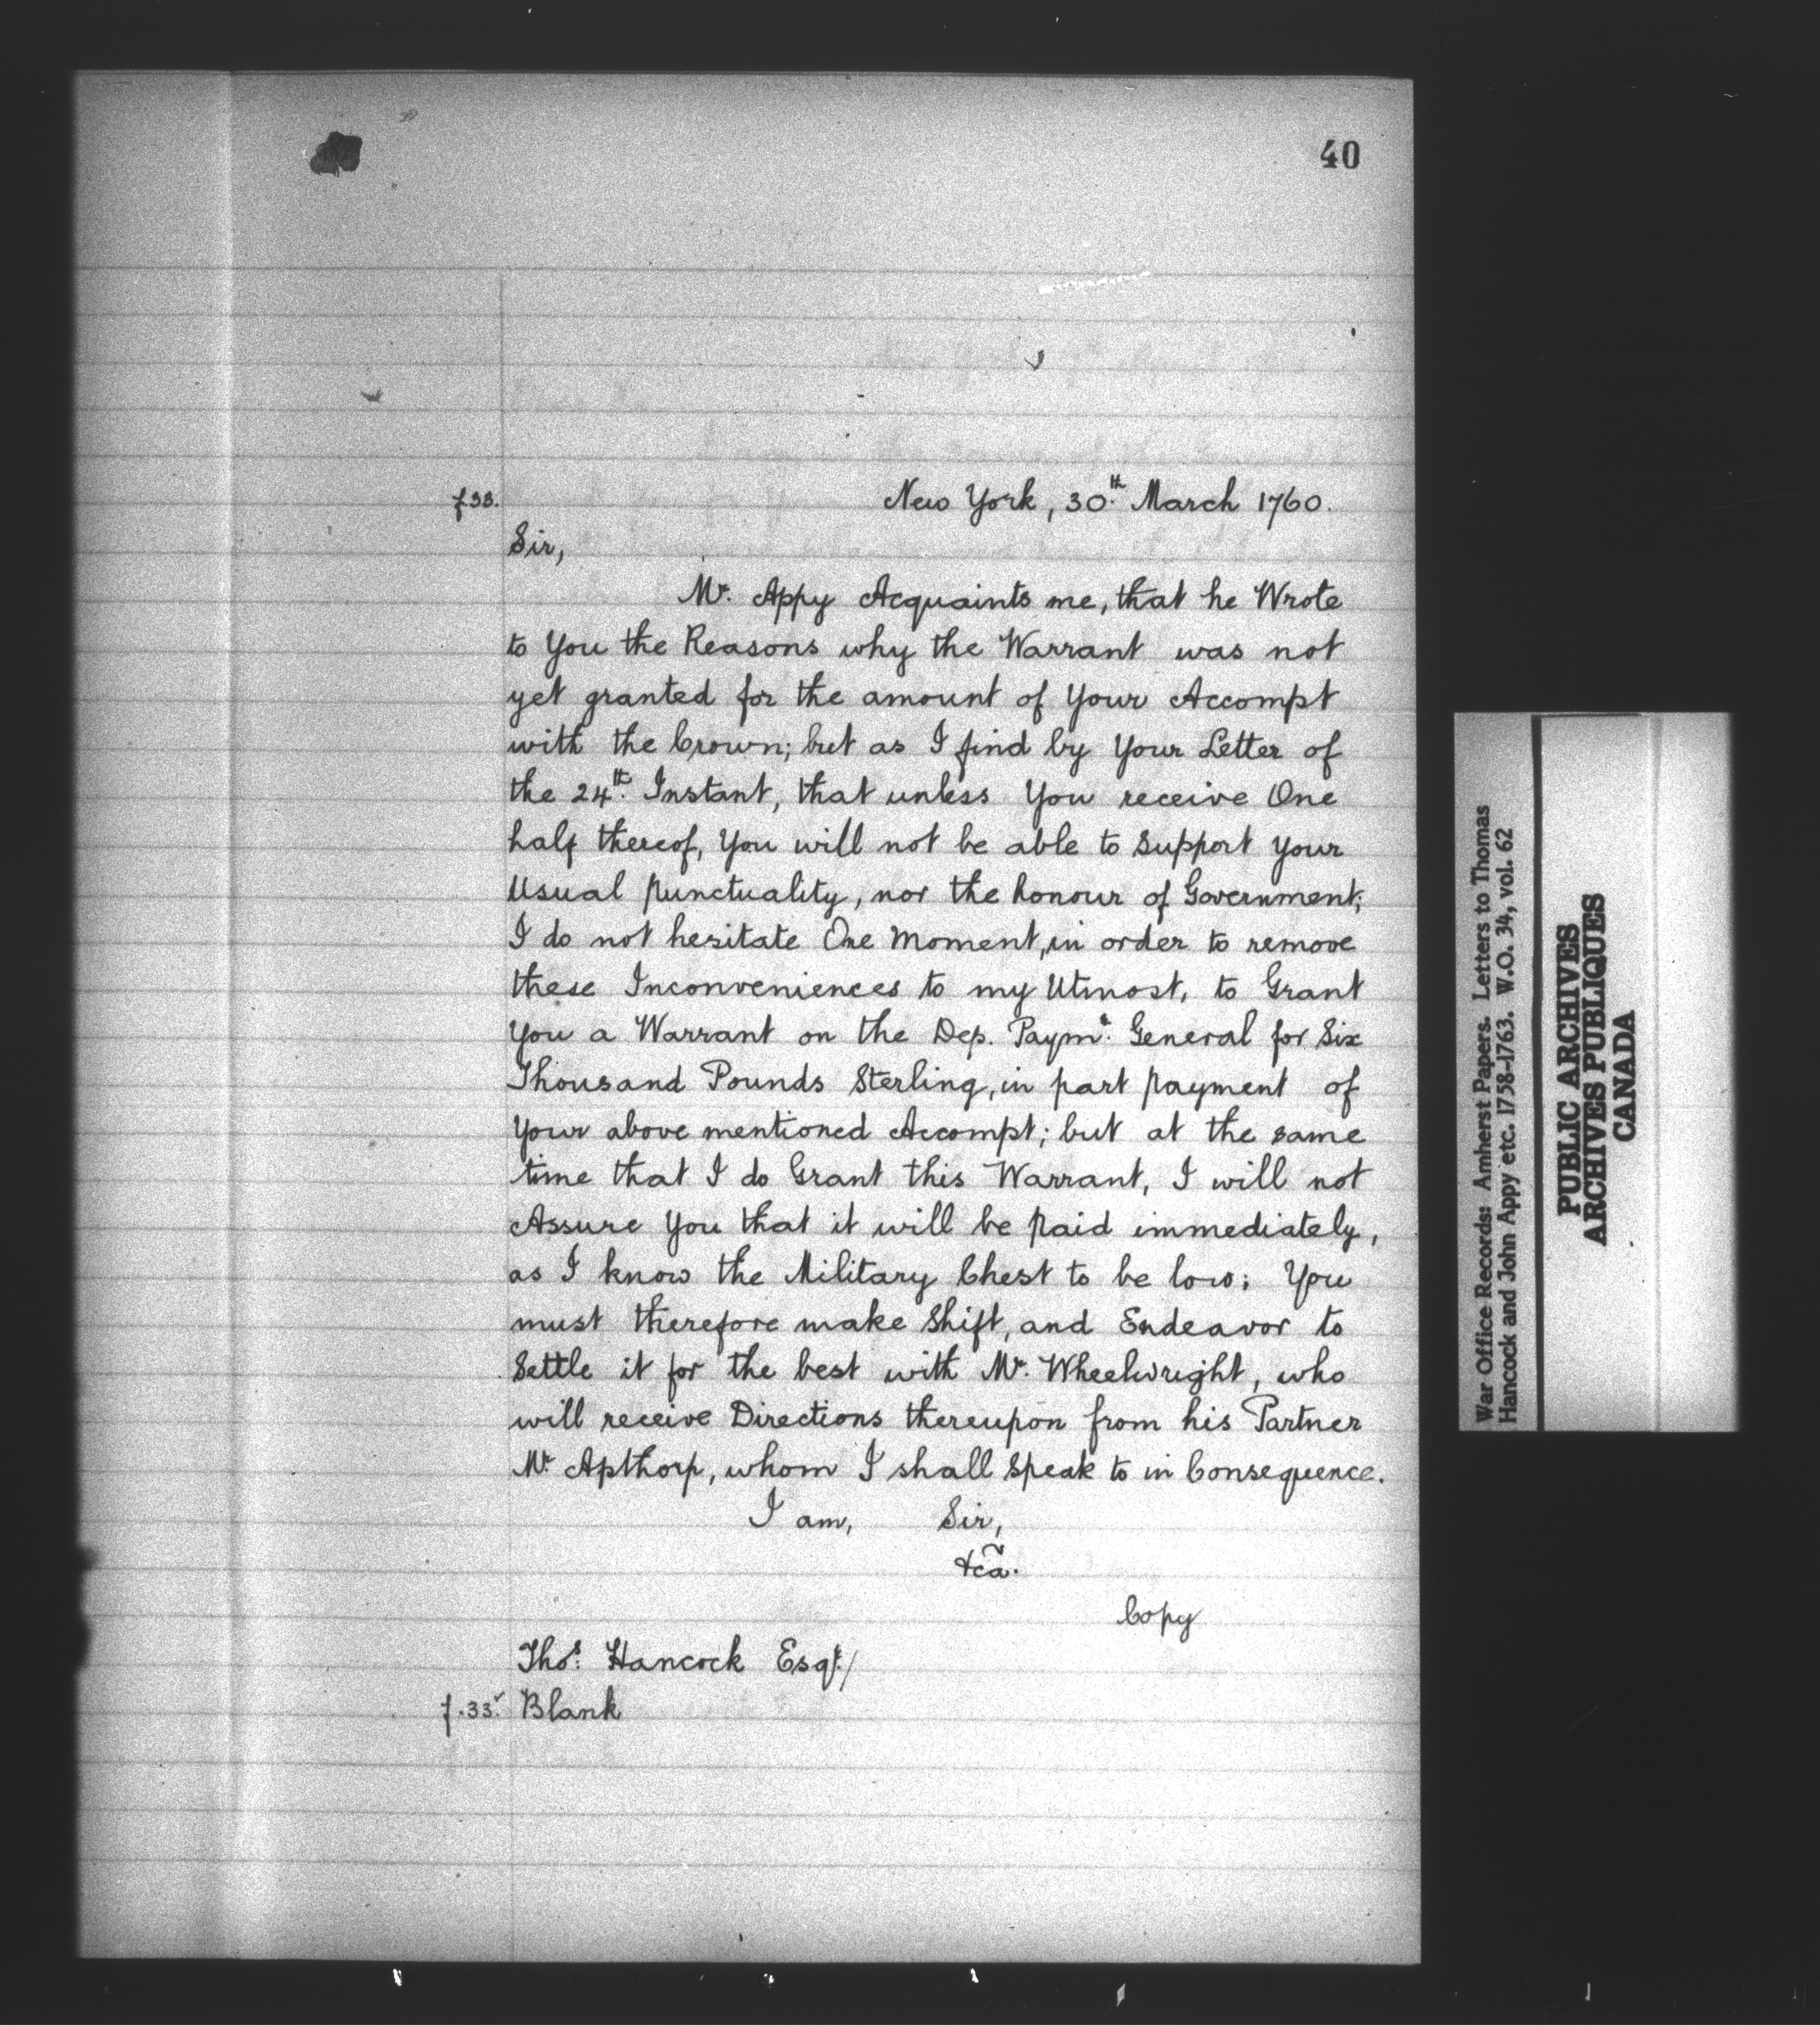 40
f.33.
New York, 30.th March 1760.
Sir,
Mr. Appy Acquaints me, that he Wrote
to You the Reasons why the Warrant was not
yet granted for the amount of Your Accompt
with the Crown; but as I find by Your Letter of
the 24th. Instant, that unless You receive One
half thereof, You will not be able to support your
Usual punctuality, nor the honour of Government;
I do not hesitate One Moment, in order to remove
these Inconveniences to my Utmost, to Grant
You a Warrant on the Dep. Paymr. General for Six
Thousand Pounds Sterling, in part payment of
Your above mentioned Accompt; but at the same
time that I do Grant this Warrant, I will not
Assure You that it will be paid immediately,
as I know the Military Chest to be low; You
must therefore make Shift, and Endeavor to
Settle it for the best with Mr. Wheelwright, who
will receive Directions thereupon from his Partner
Mr. Apthorp, whom I shall speak to in Consequence.
I am, Sir,
&ca.
Copy
Thos. Hancock Esqr./
f.33v. Blank
War Office Records: Amherst Papers. Letters to Thomas
Hancock and John Appy etc. 1758-1763. W.O. 34, vol. 62
PUBLIC ARCHIVES
ARCHIVES PUBLIQUES
CANADA